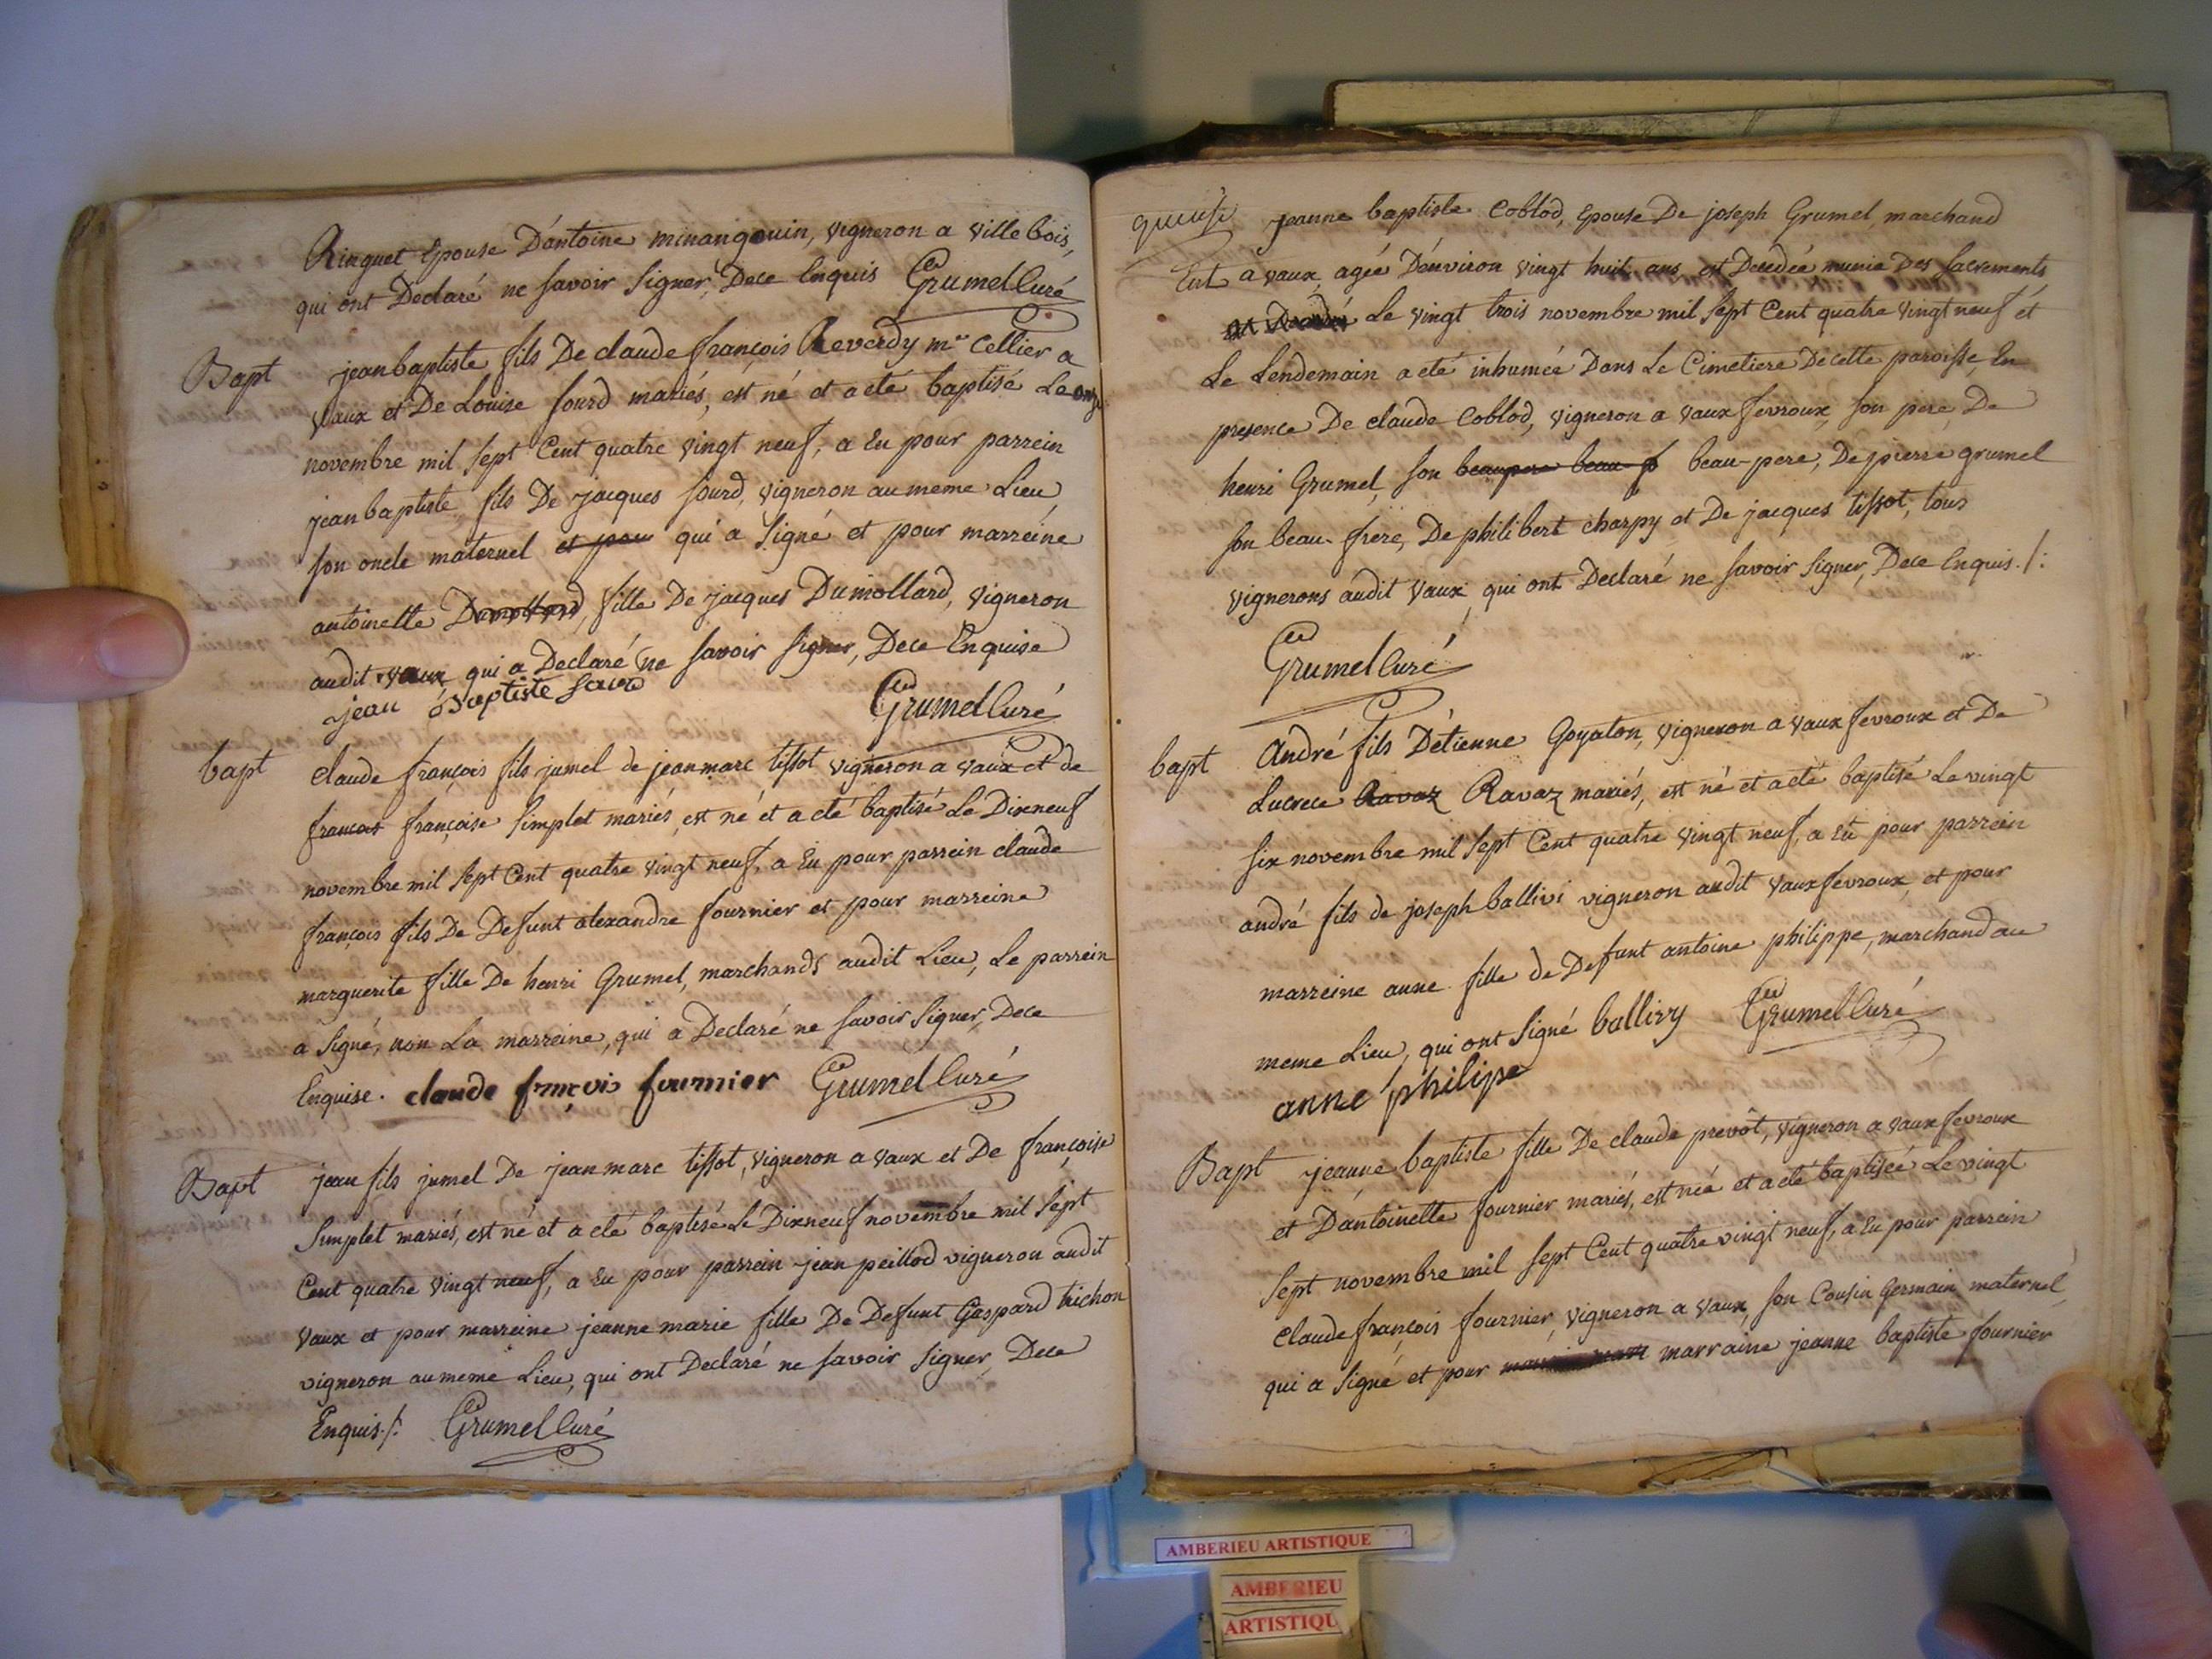 Ringuet Epouse D'antoine minangouin, vigneron a ville bois,
qui ont Declaré ne savoir signer, Dece Enquis Grumel Curé
Bapt jean baptiste fils De claude françois Reverdy m.re Cellier a
vaux et De Louise sourd mariés, est né et a eté baptisé Le onze
novembre mil sept Cent quatre vingt neuf, a Eu pour parrein
jean baptiste fils De jacques sourd, vigneron au meme Lieu,
son oncle maternel et pour qui a signé et pour marreine
antoinette Dumollard, fille De jacques Dumollard, vigneron
audit vaux qui a Declaré ne savoir signer, Dece Enquise
jean Baptiste sourd Grumel Curé
bapt claude françois fils jumel de jean marc tissot vigneron a vaux et de
francois françoise simplet mariés, est né et a eté baptisé Le Dixneuf
novembre mil sept Cent quatre vingt neuf, a Eu pour parrein claude
françois fils De Defunt alexandre fournier et pour marreine
marguerite fille De henri Grumel, marchands audit Lieu, Le parrein
a signé, non La marreine, qui a Declaré ne savoir signer, Dece
Enquise. claude françois fournier Grumel Curé
Bapt jean fils jumel De jean marc tissot, vigneron a vaux et De françoise
simplet mariés, est né et a eté baptisé Le Dixneuf novembre mil sept
Cent quatre vingt neuf, a Eu pour parrein jean peillod vigneron audit
vaux et pour marreine jeanne marie fille De Defunt Gaspard trichon
vigneron au meme Lieu, qui ont Declaré ne savoir signer, Dece
Enquis./: Grumel Curé
jeanne baptiste Coblod, Epouse De joseph Grumel, marchand
Ent a vaux, agée D'environ vingt huit ans est Decedée munie Des sacrements
Le vingt trois novembre mil sept Cent quatre vingt neuf et
Le Lendemain a eté inhumée Dans Le Cimetiere De cette paroisse, En
presence De claude Coblod, vigneron a vaux fevroux, son pere, De
henri Grumel, son beaupere beau-p beau-pere, De pierre grumel
son beau-frere, De philibert charpy et De jacques tissot, tous
vignerons audit vaux, qui ont Declaré ne savoir signer, Dece Enquis./:
Grumel Curé
bapt André fils D'etienne Goyaton, vigneron a vaux fevroux et De
Lucrece Ravaz Ravaz mariés, est né et a eté baptisé Le vingt
six novembre mil sept Cent quatre vingt neuf, a Eu pour parrein
andré fils de joseph ballivi vigneron audit vaux fevroux, et pour
marreine anne fille de Defunt antoine philippe, marchand au
meme Lieu, qui ont signé ballivy Grumel Curé
anne philipe
Bapt jeanne baptiste fille De claude prevôt, vigneron a vaux fevroux
et D'antoinette fournier mariés, est née et a eté baptisée Le vingt
sept novembre mil sept Cent quatre vingt neuf, a Eu pour parrein
claude françois fournier, vigneron a vaux, son Cousin germain maternel,
qui a signé et pour marraine jeanne baptiste fournier
AMBERIEU ARTISTIQUE
AMBERIEU
ARTISTIQU